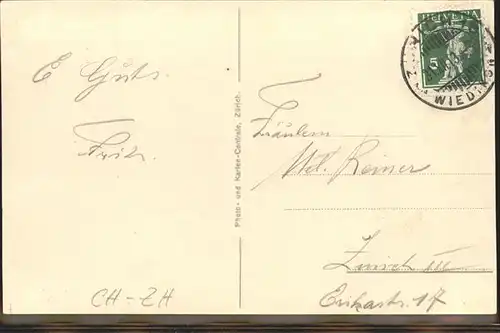 E Guts.
Fritz.
CH-ZH
Photo- und Karten-Centrale, Zürich.
HELVETIA
5
WIEDIKON
Fräulein
Reiner
Zürich III
Erikastr. 17